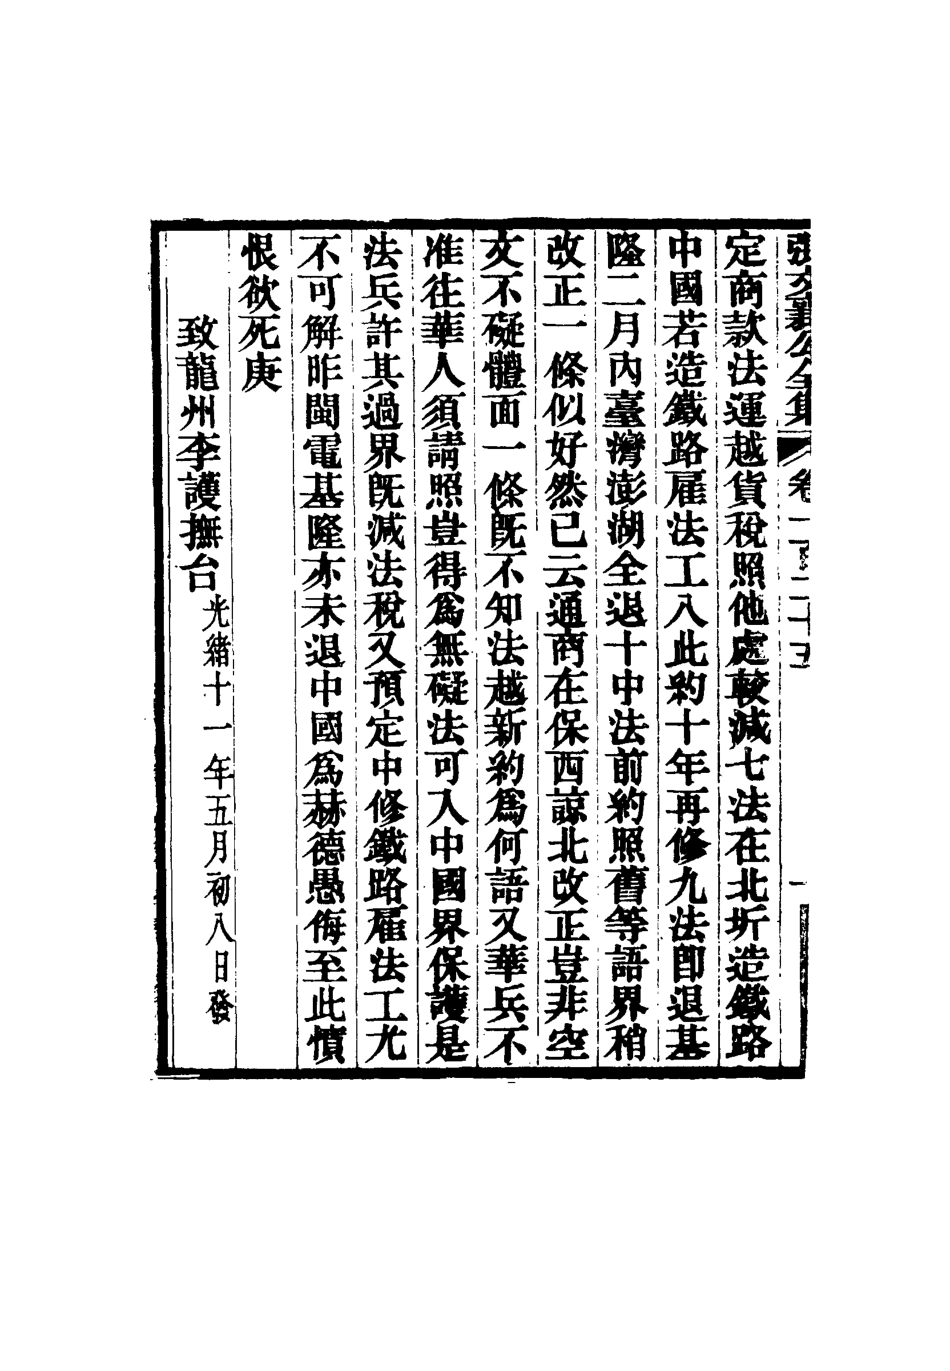 張文襄公全集 卷一百二十五 一
定商款法運越貨稅照他處較減七法在北圻造鐵路
中國若造鐵路雇法工入此約十年再修九法卽退基
隆二月內臺灣澎湖全退十中法前約照舊等語界稍
改正一條似好然已云通商在保西諒北改正豈非空
文不礙體面一條旣不知法越新約爲何語又華兵不
准往華人須請照豈得爲無礙法可入中國界保護是
法兵許其過界旣減法稅又預定中修鐵路雇法工尤
不可解昨閩電基隆亦未退中國爲赫德愚侮至此憤
恨欲死庚
致龍州李護撫台光緒十一年五月初八日發